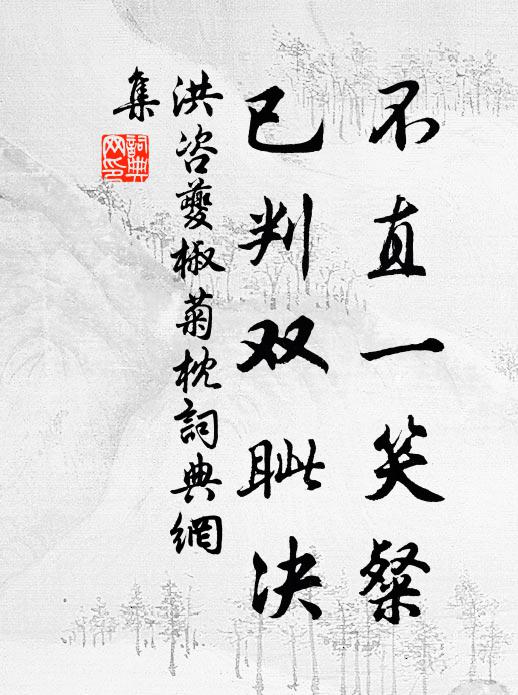 不直一笑粲
已判双眦决
洪咨夔椒菊枕詞典網
集
詞典
网印